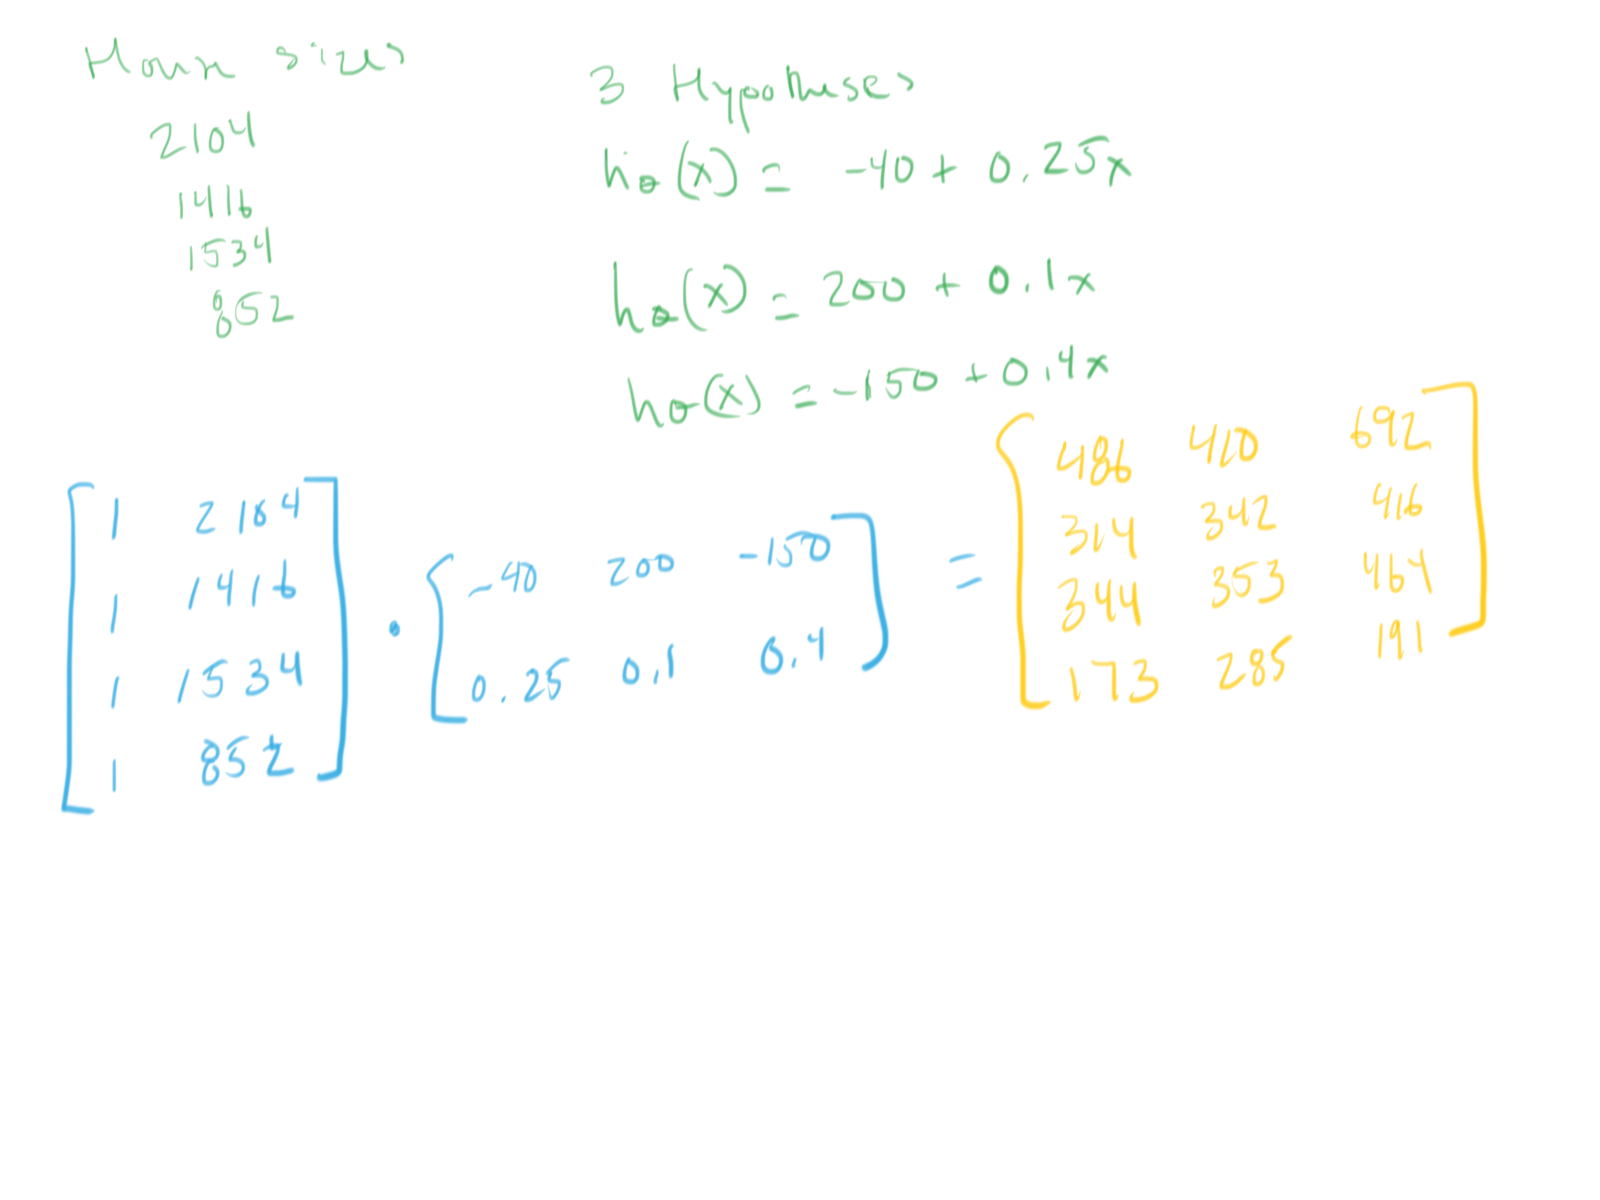 House sizes
2104
1416
1534
852
3 Hypotheses
hθ(x) = -40 + 0.25x
hθ(x) = 200 + 0.1x
hθ(x) = -150 + 0.4x
[1 2104
1 1416
1 1534
1 852]
·
[-40 200 -150
0.25 0.1 0.4]
=
[486 410 692
314 342 416
344 353 464
173 285 191]